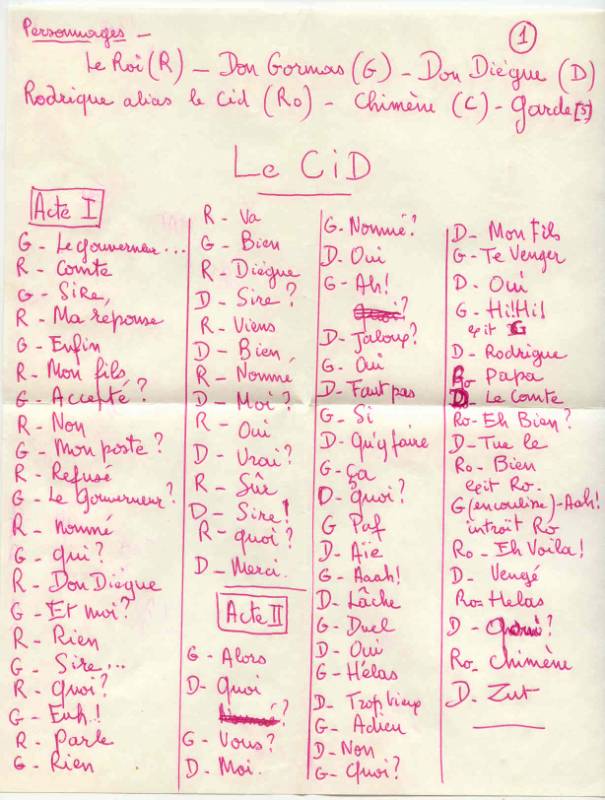 Personnages -
①
Le Roi (R) - Don Gormas (G) - Don Diégue (D)
Rodrigue alias le Cid (Ro) - Chimène (C) - garde(s)
Le CiD
Acte I
G - Le gouverneur ...
R - Comte
G - SiRe,
R - Ma réponse
G - Enfin
R - Mon fils
G - Accepté ?
R - Non
G - Mon poste ?
R - Refusé
G - Le Gouverneur ?
R - nommé
G - qui ?
R - Don Diégue
G - Et moi ?
R - Rien
G - Sire ...
R - quoi ?
G - Euh !
R - Parle
G - Rien
R - Va
G - Bien
R - Diégue
D - Sire ?
R - Viens
D - Bien
R - Nommé
D - Moi ?
R - Oui
D - Vrai ?
R - Sûr
D - Sire !
R - quoi ?
D - Merci.
Acte II
G - Alors
D - Quoi
?
G - Vous ?
D - Moi.
G - Nommé ?
D - Oui
G - Ah !
?
D - Jaloux ?
G - Oui
D - Faut pas
G - Si
D - Qu'y faire
G - Ça
D - quoi ?
G Paf
D - Aïe
G - Aaah !
D - Lâche
G - Duel
D - Oui
G - Hélas
D - Trop vieux
G - Adieu
D - Non
G - Quoi ?
D - Mon fils
G - Te Venger
D - Oui
G - Hi! Hi!
exit G
D - Rodrigue
Ro - Papa
D - Le Comte
Ro - Eh Bien ?
D - Tue le
Ro - Bien
exit Ro.
G (en coulisse) - Aah !
introït Ro
Ro - Eh Voila !
D - Vengé
Ro - Helas
D - Quoi ?
Ro - Chimène
D - Zut